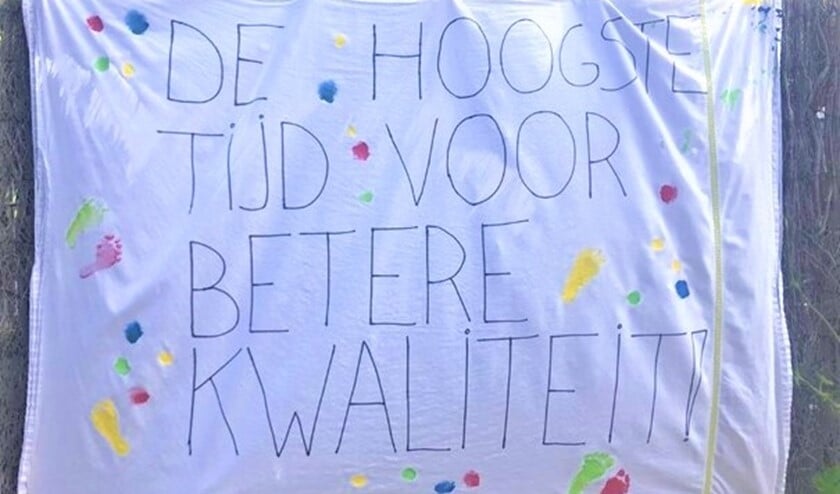 DE HOOGSTE
TIJD VOOR
BETERE
KWALITEIT!